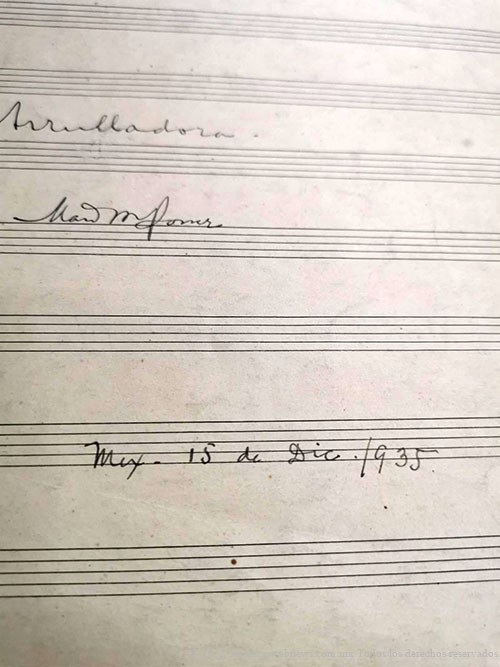 Arrulladora.
Man M Ponce
Mex - 15 de Dic. /935.
Todos los derechos reservados